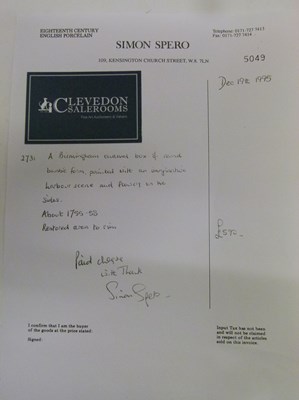 EIGHTEENTH CENTURY
ENGLISH PORCELAIN
Telephone: 0171-727 7413
Fax: 0171-727 7414
SIMON SPERO
109, KENSINGTON CHURCH STREET, W.8. 7LN
5049
Dec 19th 1995
CLEVEDON
SALEROOMS
273. A Birmingham enamel box of
form painted with an imaginative
harbour scene and on the
sides.
About 1750-55
Restored
£
Paid cheque
With Thanks
Simon Spero
I confirm that I am the buyer
of the goods at the price stated.
Signed:
Input Tax has not been
and will not be claimed
in respect of the articles
sold on this invoice.